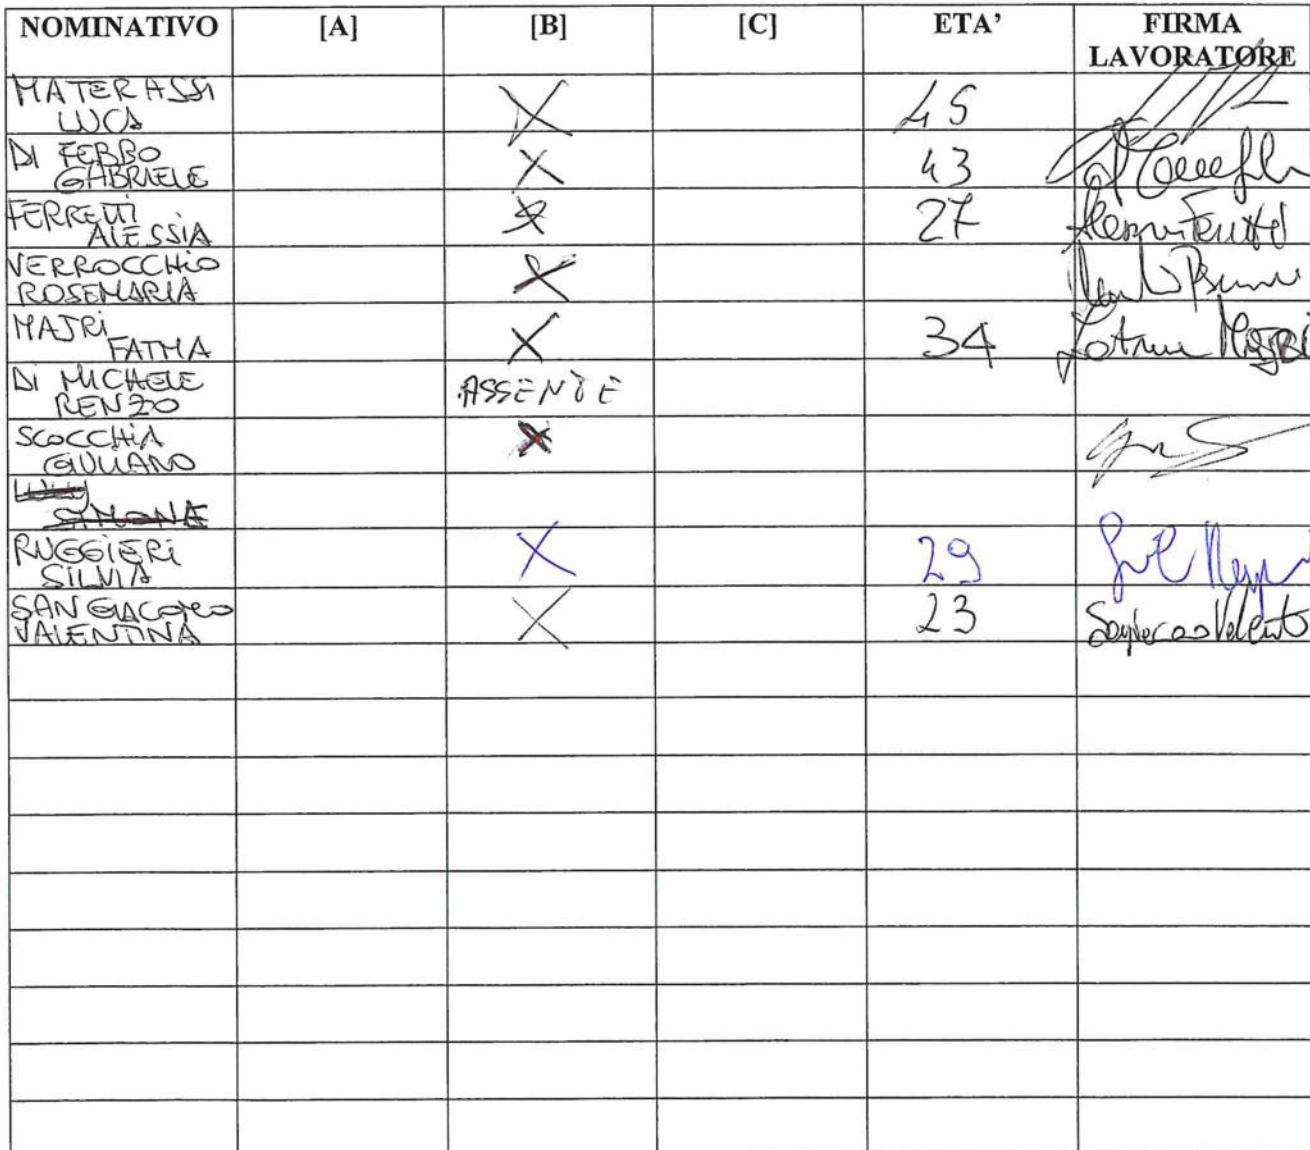 NOMINATIVO [A] [B] [C] ETA' FIRMA LAVORATORE
MATERASSI
LUCA X 45
DI FEBBO
GABRIELE X 43
FERRETTI
ALESSIA X 27
VERROCCHIO
ROSEMARIA X
MAJRI
FATMA X 34
DI MICHELE
RENZO ASSENTE
SCOCCHIA
GIULIANO X
SIMONA
RUGGIERI
SILVIA X 29
SANGIACOMO
VALENTINA X 23